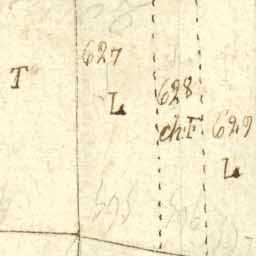 627
T
L
628
ch:F
629
L